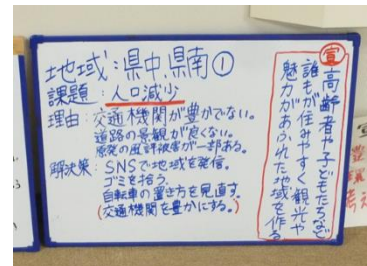 地域:県中、県南①
課題:人口減少
理由:交通機関が豊かでない。
道路の景観が良くない。
原発の風評被害が一部ある。
解決策:SNSで地域を発信。
ゴミを拾う。
自転車の置き方を見直す。
(交通機関を豊かにする。)
宣
高齢者や子どもたちなど
誰もが住みやすく観光や
魅力があふれた地域を作る